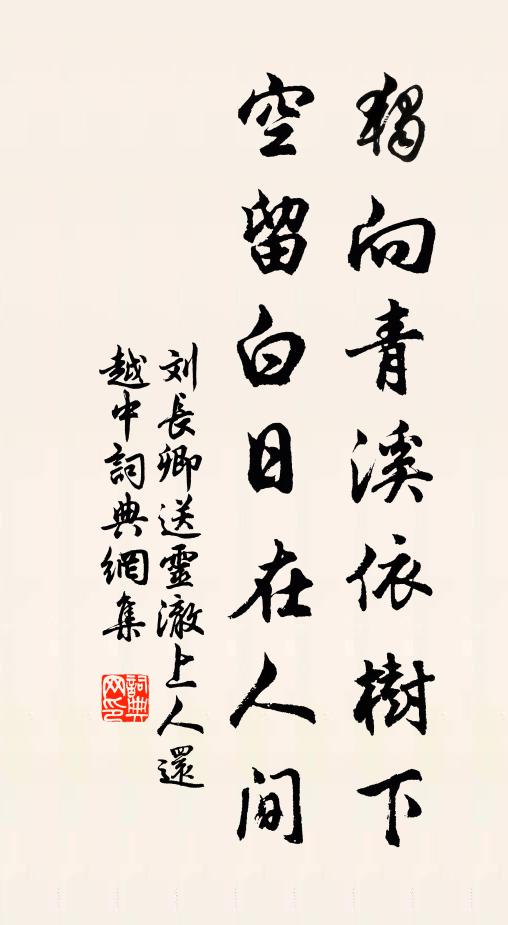 獨向青溪依樹下
空留白日在人间
刘長卿送靈澈上人還
越中詞典網集
詞典网印